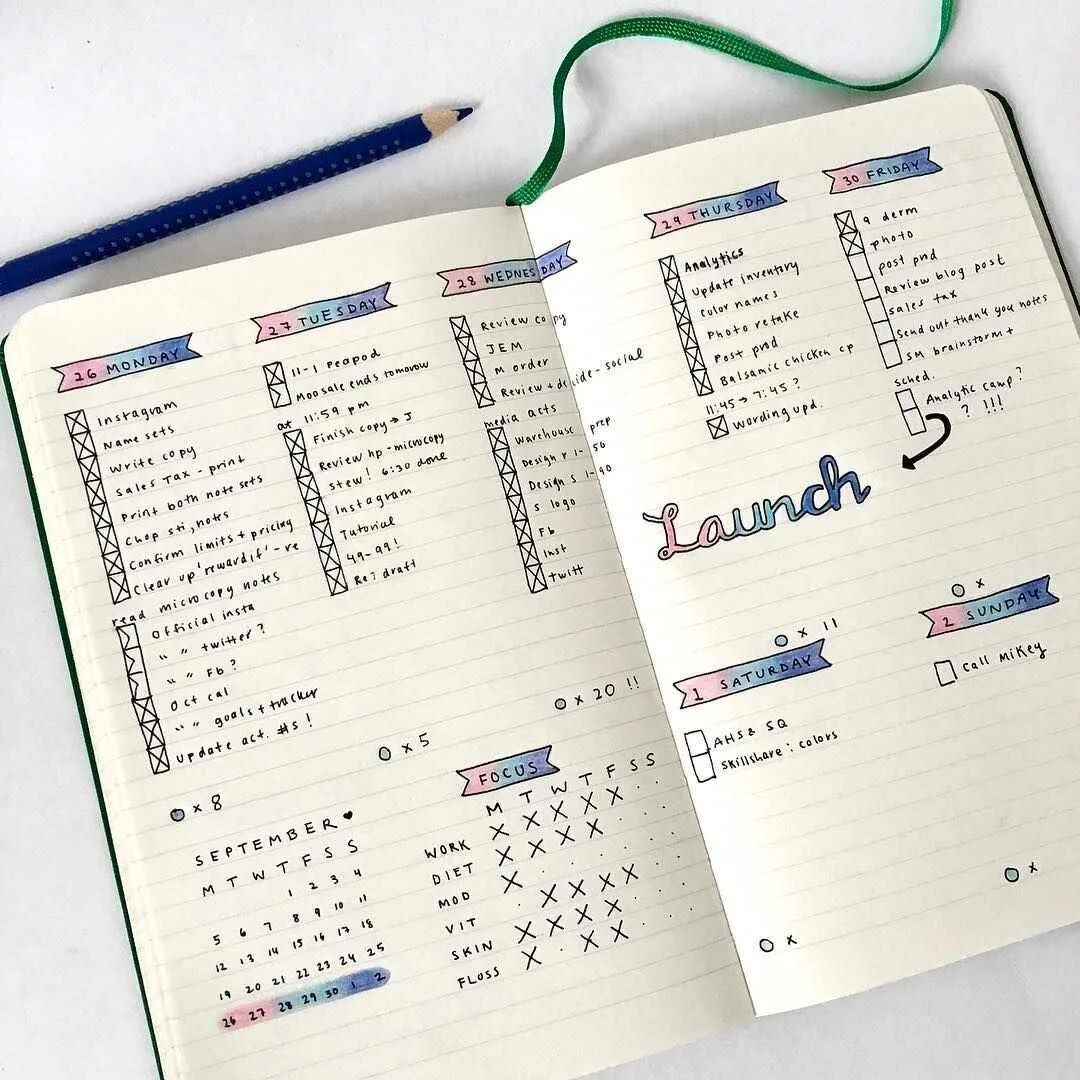 26 MONDAY
Instagram
Name sets
Write copy
Sales Tax - print
Print both note sets
Chop sti, notes
Confirm limits + pricing
Clear up 'reward if' - re
read microcopy notes
Official insta
" " twitter?
" " Fb?
Oct cal
" " goals + tracker
update act. #s!
x 8
27 TUESDAY
11-1 Peapod
Moosale ends tomorow
at 11:59 pm
Finish copy → J
Review hp - microcopy
stew! 6:30 done
Instagram
Tutorial
49-99!
Re: draft
x 5
28 WEDNESDAY
Review copy
JEM
M order
Review + de ide - social
media acts
Warehouse prep.
Design r 1- 50
Design S 1-90
S logo
Fb
Inst
Twitt
x 20 !!
SEPTEMBER ♥
M T W T F S S
1 2 3 4
5 6 7 8 9 10 11
12 13 14 15 16 17 18
19 20 21 22 23 24 25
26 27 28 29 30 1 2
FOCUS
M T W T F S S
WORK X X X X X . .
DIET X X X X . . .
MOD X . . . . . .
VIT . X X X X . .
SKIN X X X X . . .
FLOSS X . X X . . .
29 THURSDAY
Analytics
Update inventory
Color names
Photo retake
Post prod
Balsamic chicken cp
11:45 → 7:45?
Wording upd.
30 FRIDAY
9 derm
photo
post pnd
Review blog post
sales tax
Send out thank you notes
SM brainstorm +
sched.
Analytic camp?
? !!!
Launch
x 11
1 SATURDAY
AHS & SQ
Skillshare: colors
x
x
2 SUNDAY
Call Mikey
x